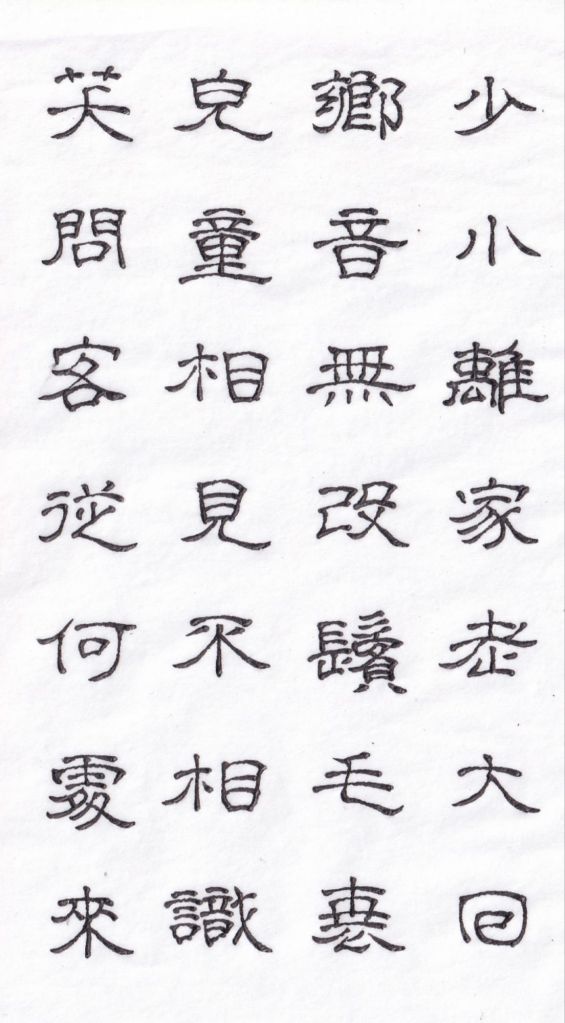 少小離家老大回
鄉音無改鬢毛衰
皃童相見不相識
芺問客從何處來